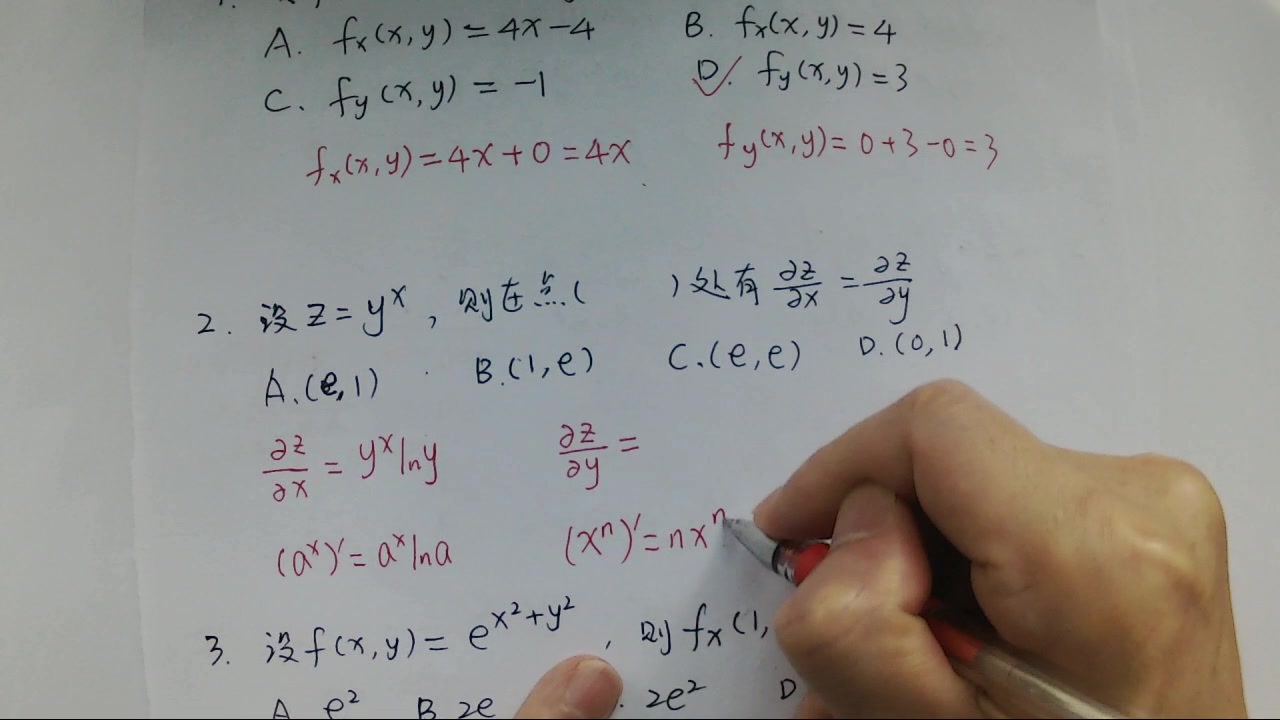 A. fx(x,y)=4x-4 B. fx(x,y)=4
C. fy(x,y)=-1 D. fy(x,y)=3
fx(x,y)=4x+0=4x fy(x,y)=0+3-0=3
2. 设z=y^x,则在点( )处有 ∂z/∂x=∂z/∂y
A.(e,1) B.(1,e) C.(e,e) D.(0,1)
∂z/∂x=y^x lny ∂z/∂y=
(a^x)'=a^x lna (x^n)'=nx^n
3. 设f(x,y)=e^(x²+y²),则fx(1,
A e² B 2e . 2e² D